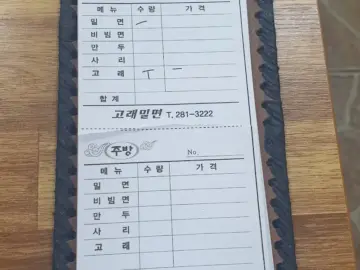 메뉴 수량 가격
밀 면
비 빔 면
만 두
사 리
고 래
합 계
고래밀면 T. 281-3222
주방 No.
메 뉴 수 량 가 격
밀 면
비 빔 면
만 두
사 리
고 래